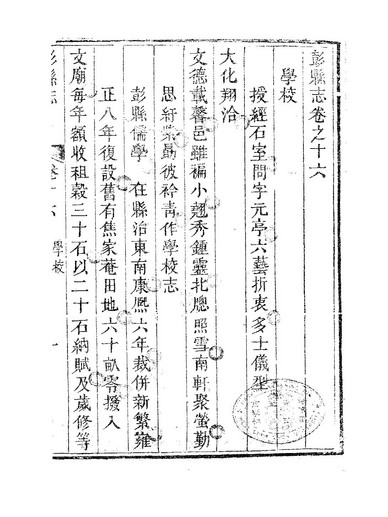 彭縣志卷之十六
學校
授經石室問字元亭六藝折衷多士儀型
大化翔洽
文德載馨邑雖褊小翹秀鍾靈北牕照雪南軒聚螢勤
思紆紫勗彼衿青作學校志
彭縣儒學 在縣治東南康熙六年裁併新繁雍
正八年復設舊有焦家菴田地六十畝零撥入
文廟每年額收租穀三十石以二十石納賦及歲修等
彭縣志 卷十六 學校 一